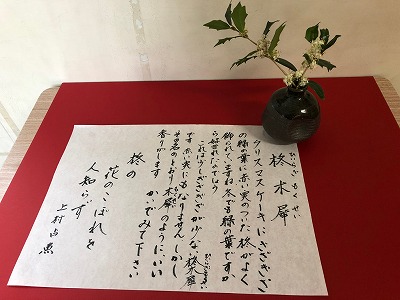 柊木犀
ひいらぎもくせい
クリスマスケーキにぎざぎざ
の緑の葉に赤い実のついた柊がよく
飾られていますね冬でも緑の葉ですか
ら好まれたのでしょう
これは少しぎざぎざが少ない柊木犀
です 赤い実にもなりません しかし
その名のとおり木犀のように、いい
香りがします かいでみて下さい
柊の
花のこぼれを
人知らず
上村占魚